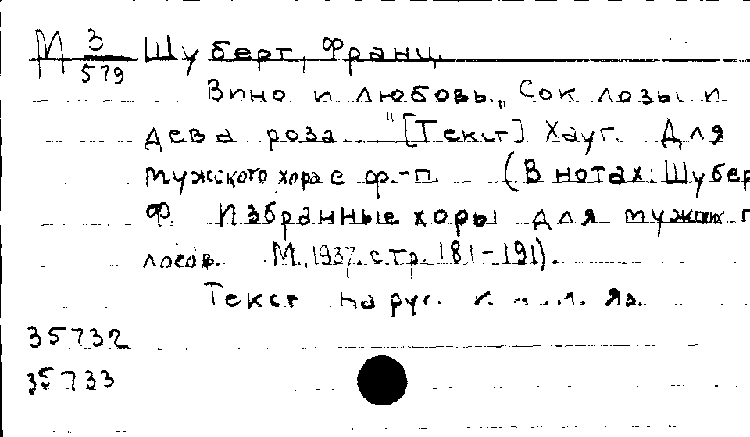 М 3/579 Шуберт, Франц.
Вино и любовь. „Сок лозы и
дева роза" [Текст] Хауг. Для
мужского хора с ф.-п. (В нотах: Шубер
Ф. Избранные хоры для мужских г
лосов. М., 1937, стр. 181-191).
Текст на рус. и яз.
35732
35733